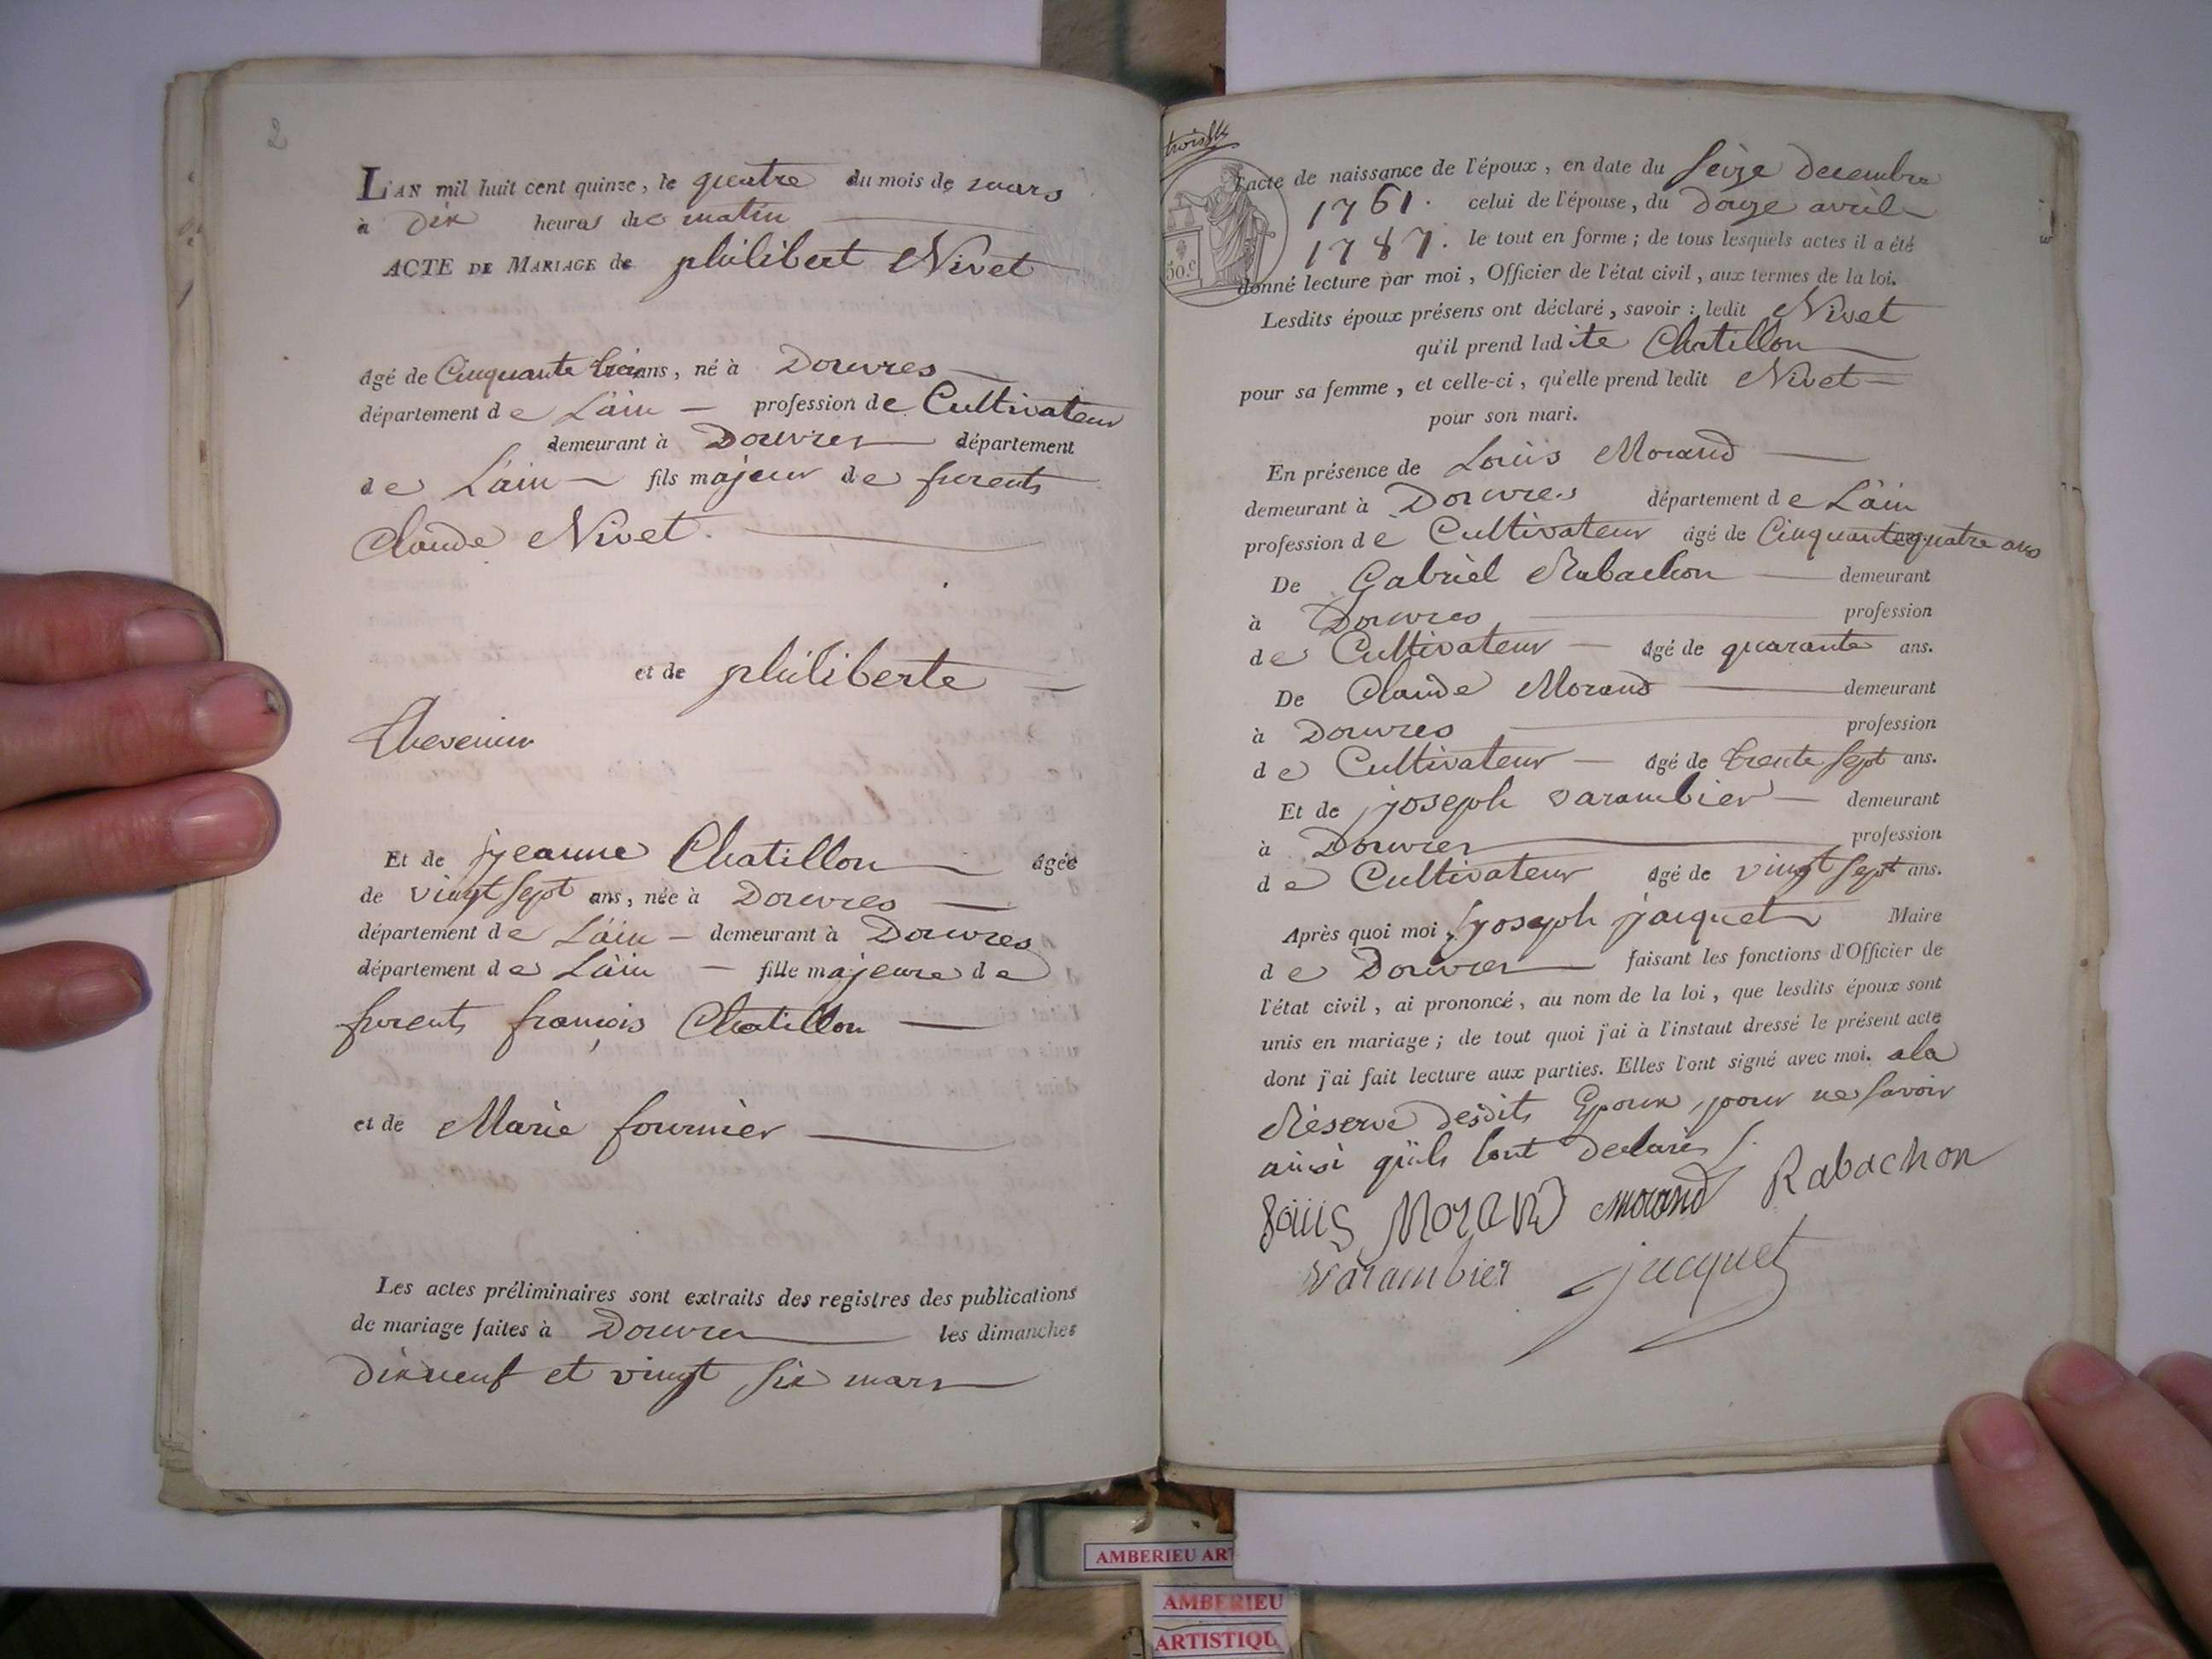 2
L'AN mil huit cent quinze, le quatre du mois de mars
à Dix heures du matin
ACTE DE MARIAGE de philibert Nivet
âgé de Cinquante trois ans, né à Douvres
département de L'ain profession de Cultivateur
demeurant à Douvres département
de L'ain fils majeur de furents
Claude Nivet.
et de philiberte
Thevenin
Et de jeanne Chatillon âgée
de vingt sept ans, née à Douvres
département de L'ain demeurant à Douvres
département de L'ain fille majeure de
furents françois Chatillon
et de Marie fournier
Les actes préliminaires sont extraits des registres des publications
de mariage faites à Douvres les dimanches
dixneuf et vingt six mars
l'acte de naissance de l'époux, en date du Seize decembre
1761. celui de l'épouse, du douze avril
1787. le tout en forme; de tous lesquels actes il a été
50.c
donné lecture par moi, Officier de l'état civil, aux termes de la loi.
Lesdits époux présens ont déclaré, savoir: ledit Nivet
qu'il prend ladite Chatillon
pour sa femme, et celle-ci, qu'elle prend ledit Nivet
pour son mari.
En présence de Louis Morand
demeurant à Douvres département de L'ain
profession de Cultivateur âgé de Cinquante quatre ans
De Gabriel Rabachon demeurant
à Douvres profession
de Cultivateur âgé de quarante ans.
De Claude Morand demeurant
à Douvres profession
de Cultivateur âgé de trente sept ans.
Et de joseph varambier demeurant
à Douvres profession
de Cultivateur âgé de vingt sept ans.
Après quoi moi, joseph jacquet Maire
de Douvres faisant les fonctions d'Officier de
l'état civil, ai prononcé, au nom de la loi, que lesdits époux sont
unis en mariage; de tout quoi j'ai à l'instant dressé le présent acte
dont j'ai fait lecture aux parties. Elles l'ont signé avec moi. a la
Réserve desdits Epoux, pour ne savoir
ainsi qu'ils l'ont declarés
Louis Morand Morand Rabachon
varambier jacquet
AMBERIEU ART
AMBERIEU
ARTISTIQU